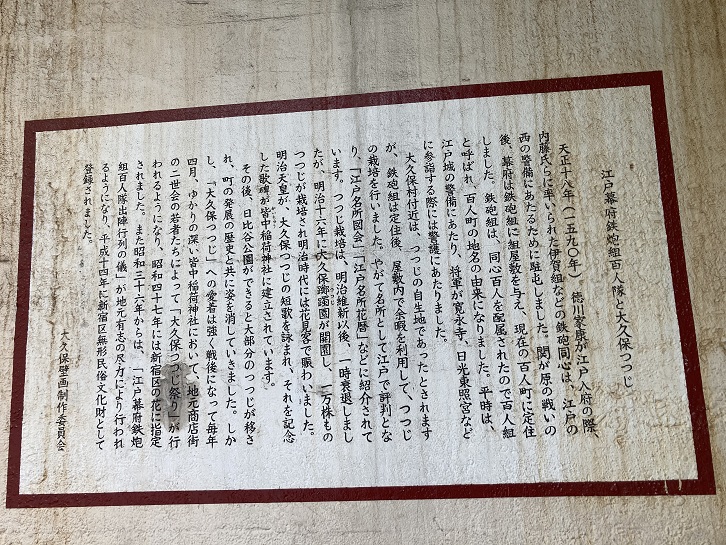 江戸幕府鉄炮組百人隊と大久保つつじ
天正十八年（一五九〇年）、徳川家康が江戸入府の際、
内藤氏らに率いられた伊賀組などの鉄炮同心は、江戸の
西の警備にあたるために駐屯しました。関が原の戦いの
後、幕府は鉄炮組に組屋敷を与え、現在の百人町に定住
しました。鉄炮組は、同心百人を配属されたので百人組
と呼ばれ、百人町の地名の由来になりました。平時は、
江戸城の警備にあたり、将軍が寛永寺、日光東照宮など
に参詣する際には警護にあたりました。
大久保村付近は、つつじの自生地であったとされます
が、鉄炮組は定住後、屋敷内で余暇を利用して、つつじ
の栽培を行いました。やがて名所として江戸で評判とな
り、「江戸名所図会」「江戸名所花暦」などに紹介されて
います。つつじ栽培は、明治維新以後、一時衰退しまし
たが、明治十六年に大久保躑躅園が開園し、一万株もの
つつじが栽培され明治時代には花見客で賑わいました。
明治天皇が、大久保つつじの短歌を詠まれ、それを記念
した歌碑が皆中稲荷神社に建立されています。
その後、日比谷公園ができると大部分のつつじが移さ
れ、町の発展の歴史と共に姿を消していきました。しか
し、「大久保つつじ」への愛着は強く戦後になって毎年
四月、ゆかりの深い皆中稲荷神社において、地元商店街
の二世会の若者たちによって「大久保つつじ祭り」が行
われるようになり、昭和四十七年には新宿区の花に指定
されました。また昭和三十六年からは、「江戸幕府鉄炮
組百人隊出陣行列の儀」が地元有志の尽力により行われ
るようになり、平成十四年に新宿区無形民俗文化財として
登録されました。
大久保壁画制作委員会